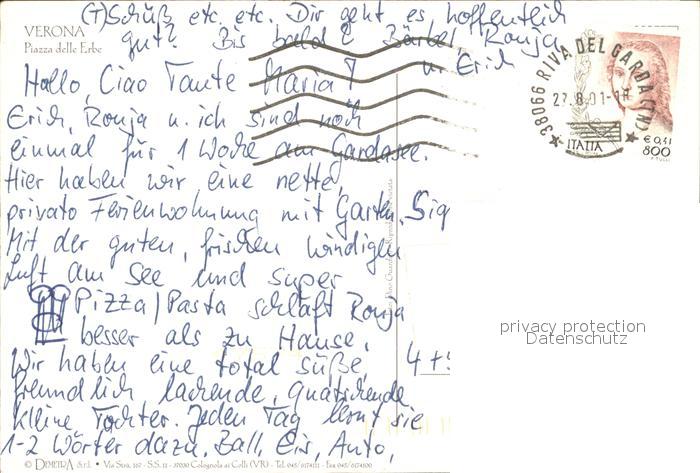 (T)Schüß, etc. etc. Dir geht es hoffentlich
gut? Bis bald! Bärbel, Ronja
u. Erich
VERONA
Piazza delle Erbe
Hallo, Ciao Tante Maria!
Erich, Ronja u. ich sind noch
einmal für 1 Woche am Gardasee.
Hier haben wir eine nette,
private Ferienwohnung mit Garten. Sig
Mit der guten, frischen windigen
Luft am See und super
Pizza/Pasta schläft Ronja
besser als zu Hause.
Wir haben eine total süße,
freundlich lachende, quatschende
kleine Tochter. Jeden Tag lernt sie
1-2 Wörter dazu. Ball, Eis, Auto,
4+
38066 RIVA DEL GARDA (TN)
27.8.01-18
ITALIA
€ 0,41
800
privacy protection
Datenschutz
© DIMETRA S.r.l. • Via Strà, 167 - S.S. 11 - 37030 Colognola ai Colli (VR) - Tel. 045/6174111 - Fax 045/6174100